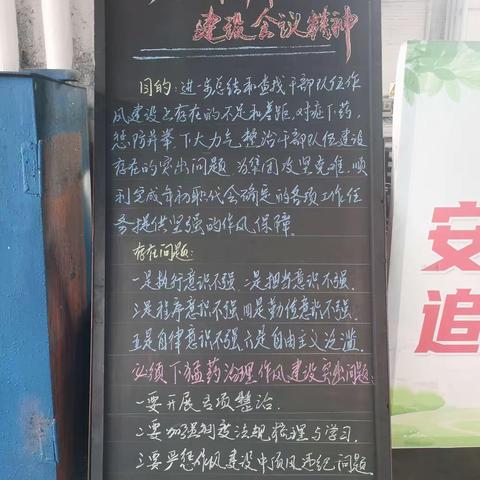 建设会议精神
目的:进一步总结和查找干部队伍作
风建设上存在的不足和差距,对症下药,
惩防并举,下大力气整治干部队伍建设
存在的突出问题,为集团攻坚克难,顺
利完成年初职代会确定的各项工作任
务提供坚强的作风保障。
存在问题:
一是执行意识不强,二是担当意识不强,
三是程序意识不强,四是勤俭意识不强,
五是自律意识不强,六是自由主义泛滥。
必须下猛药治理作风建设突出问题:
一要开展专项整治.
二要加强制度法规梳理与学习.
三要严惩作风建设中顶风违纪问题.
安
追